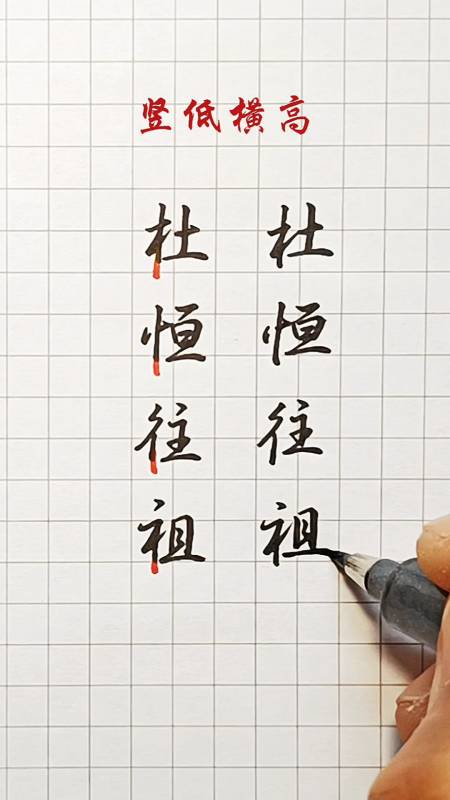 竖低横高
杜 杜
恒 恒
往 往
祖 祖